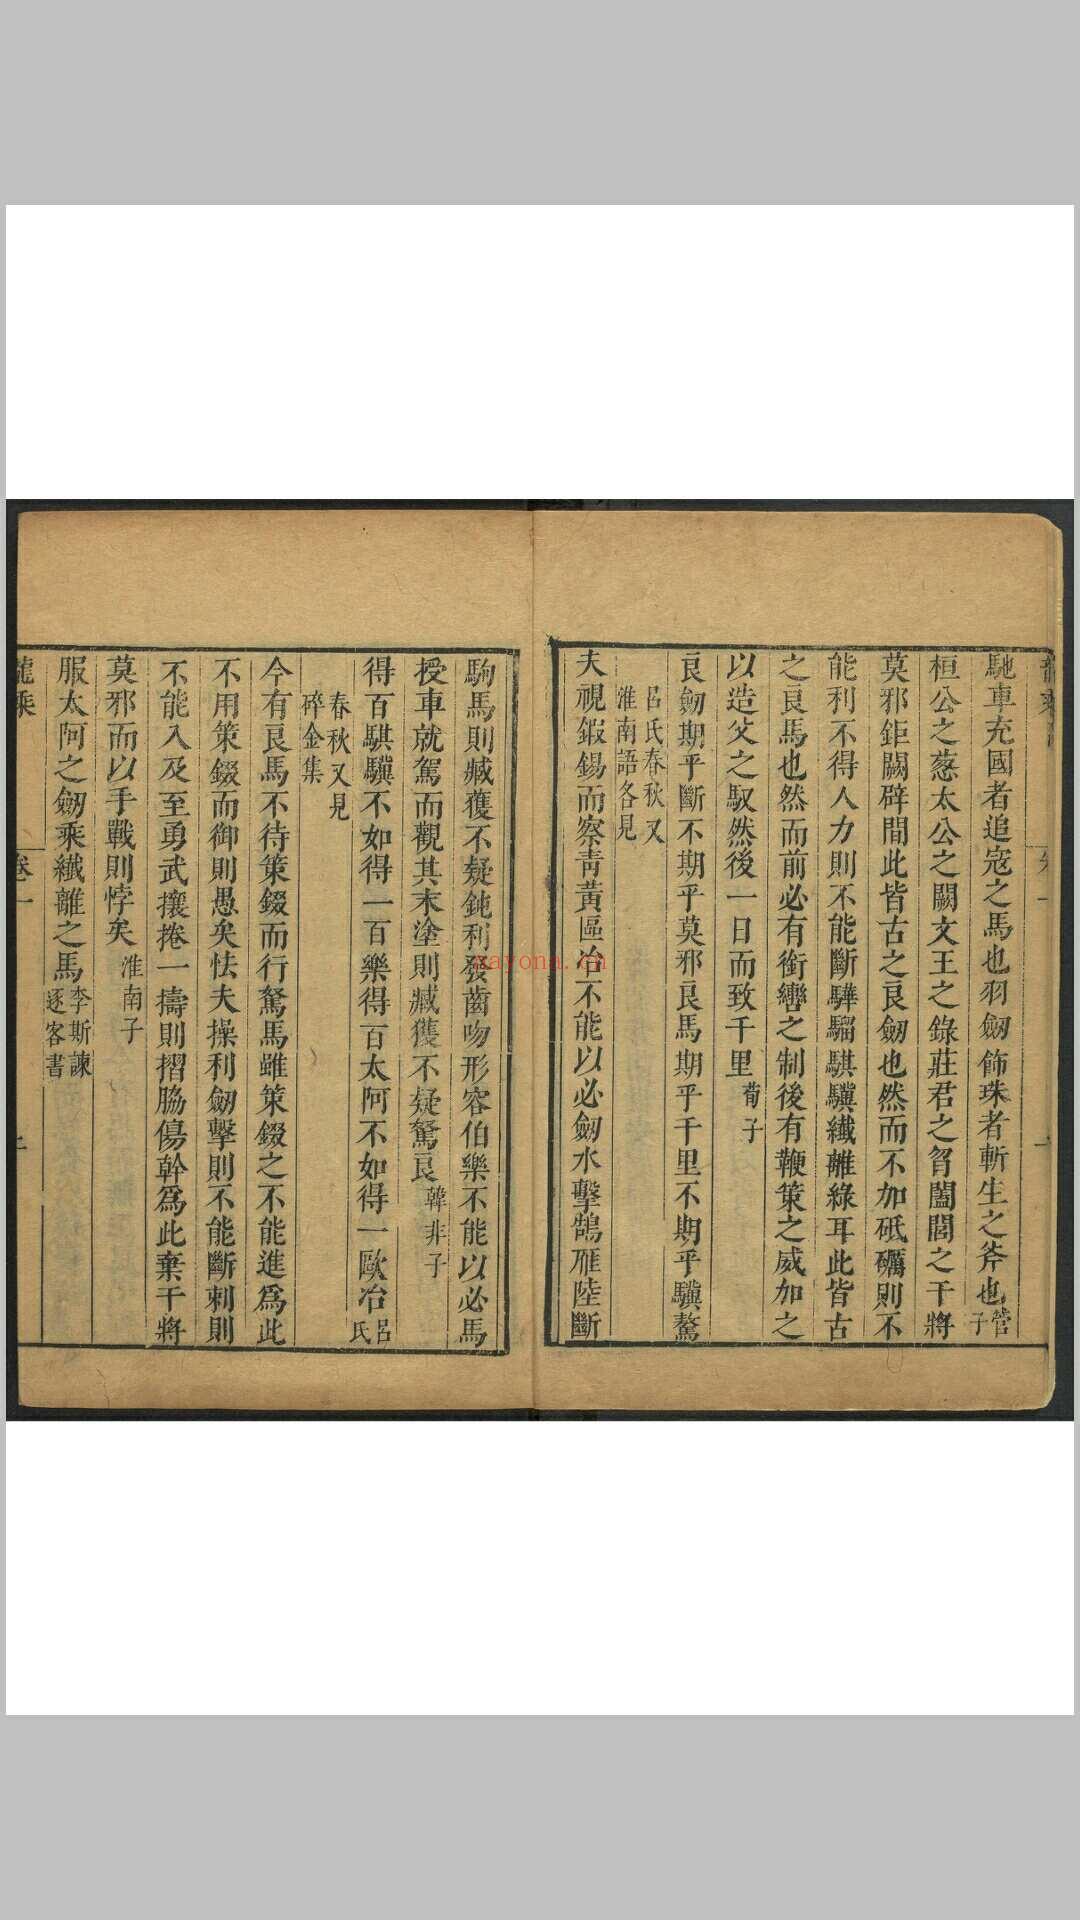 馳車充國者追寇之馬也羽劒飾珠者斬生之斧也管子
桓公之蔥太公之闕文王之錄莊君之曶闔閭之干將
莫邪鉅闕辟閭此皆古之良劒也然而不加砥礪則不
能利不得人力則不能斷驊騮騏驥纖離綠耳此皆古
之良馬也然而前必有銜轡之制後有鞭策之威加之
以造父之馭然後一日而致千里荀子
良劒期乎斷不期乎莫邪良馬期乎千里不期乎驥驁
呂氏春秋又
淮南語各見
夫視鍜錫而察靑黃區冶不能以必劒水擊鵠雁陸斷
駒馬則臧獲不疑鈍利發齒吻形容伯樂不能以必馬
授車就駕而觀其末塗則臧獲不疑駑良韓非子
得百騏驥不如得一百樂得百太阿不如得一歐冶呂氏
春秋又見
碎金集
今有良馬不待策錣而行駑馬雖策錣之不能進爲此
不用策錣而御則愚矣怯夫操利劒擊則不能斷刺則
不能入及至勇武攘捲一擣則摺脇傷幹爲此棄干將
莫邪而以手戰則悖矣淮南子
服太阿之劒乘纖離之馬李斯諫
逐客書
卷一
xayona.cn